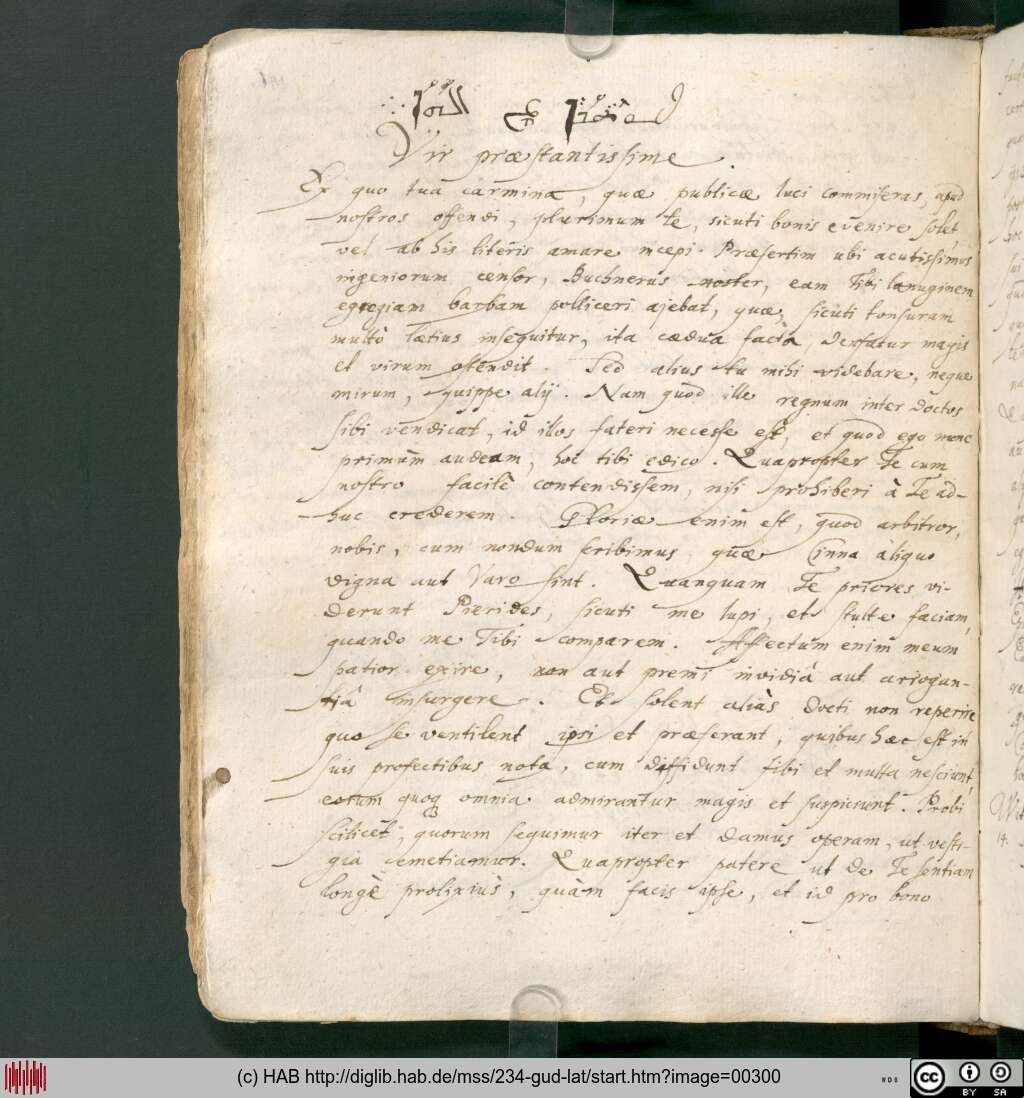 Vir præstantissime.
Ex quo tua carmina, quæ publicæ luci commiseras, apud
nostros offendi, plurimum te, sicuti bonis evenire solet,
vel ab his literis amare incepi. Præsertim ubi acutissimus
ingeniorum censor, Buchnerus noster, eam Tibi lanuginem
egregiam barbam polliceri ajebat, quæ, sicuti tonsuram
multò lætius insequitur, ita cædua facta, densatur magis
et virum ostendit. Sed alius tu mihi videbare, neque
mirum, quippe alij. Nam quod ille regnum inter doctos
sibi vendicat, id illos fateri necesse est, et quod ego nunc
primùm audeam, hoc tibi edico. Quapropter Te cum
nostro facilè contendissem, nisi prohiberi à Te ad-
huc crederem. Gloriæ enim est, quod arbitror,
nobis, cum nondum scribimus, quæ Cinna aliquo
digna aut Varo sint. Quanquam Te priores vi-
derunt Pierides, sicuti me lupi, et stulte faciam,
quando me Tibi comparem. Affectum enim meum
patior exire, non aut premi invidiâ aut arrogan-
tiâ insurgere. Et solent aliàs docti non reperire
quo se ventilent ipsi et præferant, quibus hæc est in
suis profectibus nota, cum diffidunt sibi et multa nesciunt,
eorum quoq omnia admirantur magis et suspiciunt. Probi
scilicet, quorum sequimur iter et damus operam, ut vesti-
gia emetiamur. Quapropter patere ut de Te sentiam
longè prolixiùs, quàm facis ipse, et id pro bono
(c) HAB http://diglib.hab.de/mss/234-gud-lat/start.htm?image=00300
cc BY SA